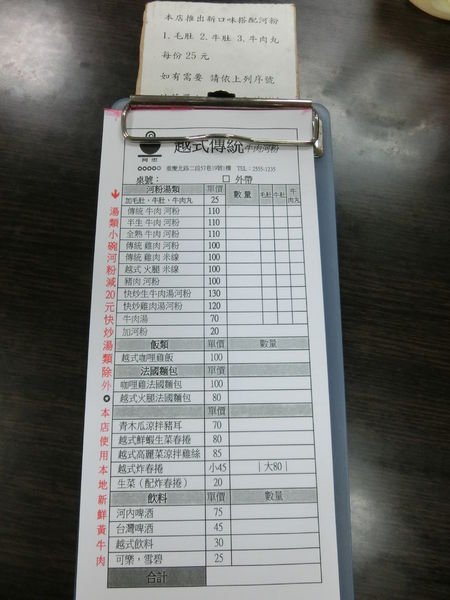 本店推出新口味搭配河粉
1.毛肚 2.牛肚 3.牛肉丸
每份 25 元
如有需要 請依上列序號
越式傳統牛肉河粉
重慶北路二段57巷19號1樓 TEL：2555-1235
桌號： □ 外帶
河粉湯類 單價 數量 毛肚 牛肚 牛肉丸
加毛肚、牛肚、牛肉丸 25
傳統 牛肉 河粉 110
半生 牛肉 河粉 110
全熟 牛肉 河粉 110
傳統 雞肉 河粉 100
傳統 雞肉 米線 100
越式 火腿 米線 100
豬肉 河粉 100
快炒生牛肉湯河粉 130
快炒雞肉湯河粉 120
牛肉湯 70
加河粉 20
飯類 單價 數量
越式咖哩雞飯 100
法國麵包 單價 數量
咖哩雞法國麵包 100
越式火腿法國麵包 80
單價 數量
青木瓜涼拌豬耳 70
越式鮮蝦生菜春捲 80
越式高麗菜涼拌雞絲 85
越式炸春捲 小45 | 大80 |
生菜（配炸春捲） 20
飲料 單價 數量
河內啤酒 75
台灣啤酒 45
越式飲料 30
可樂，雪碧 25
合計
湯類小碗河粉減20元快炒湯類除外
本店使用本地新鮮黃牛肉